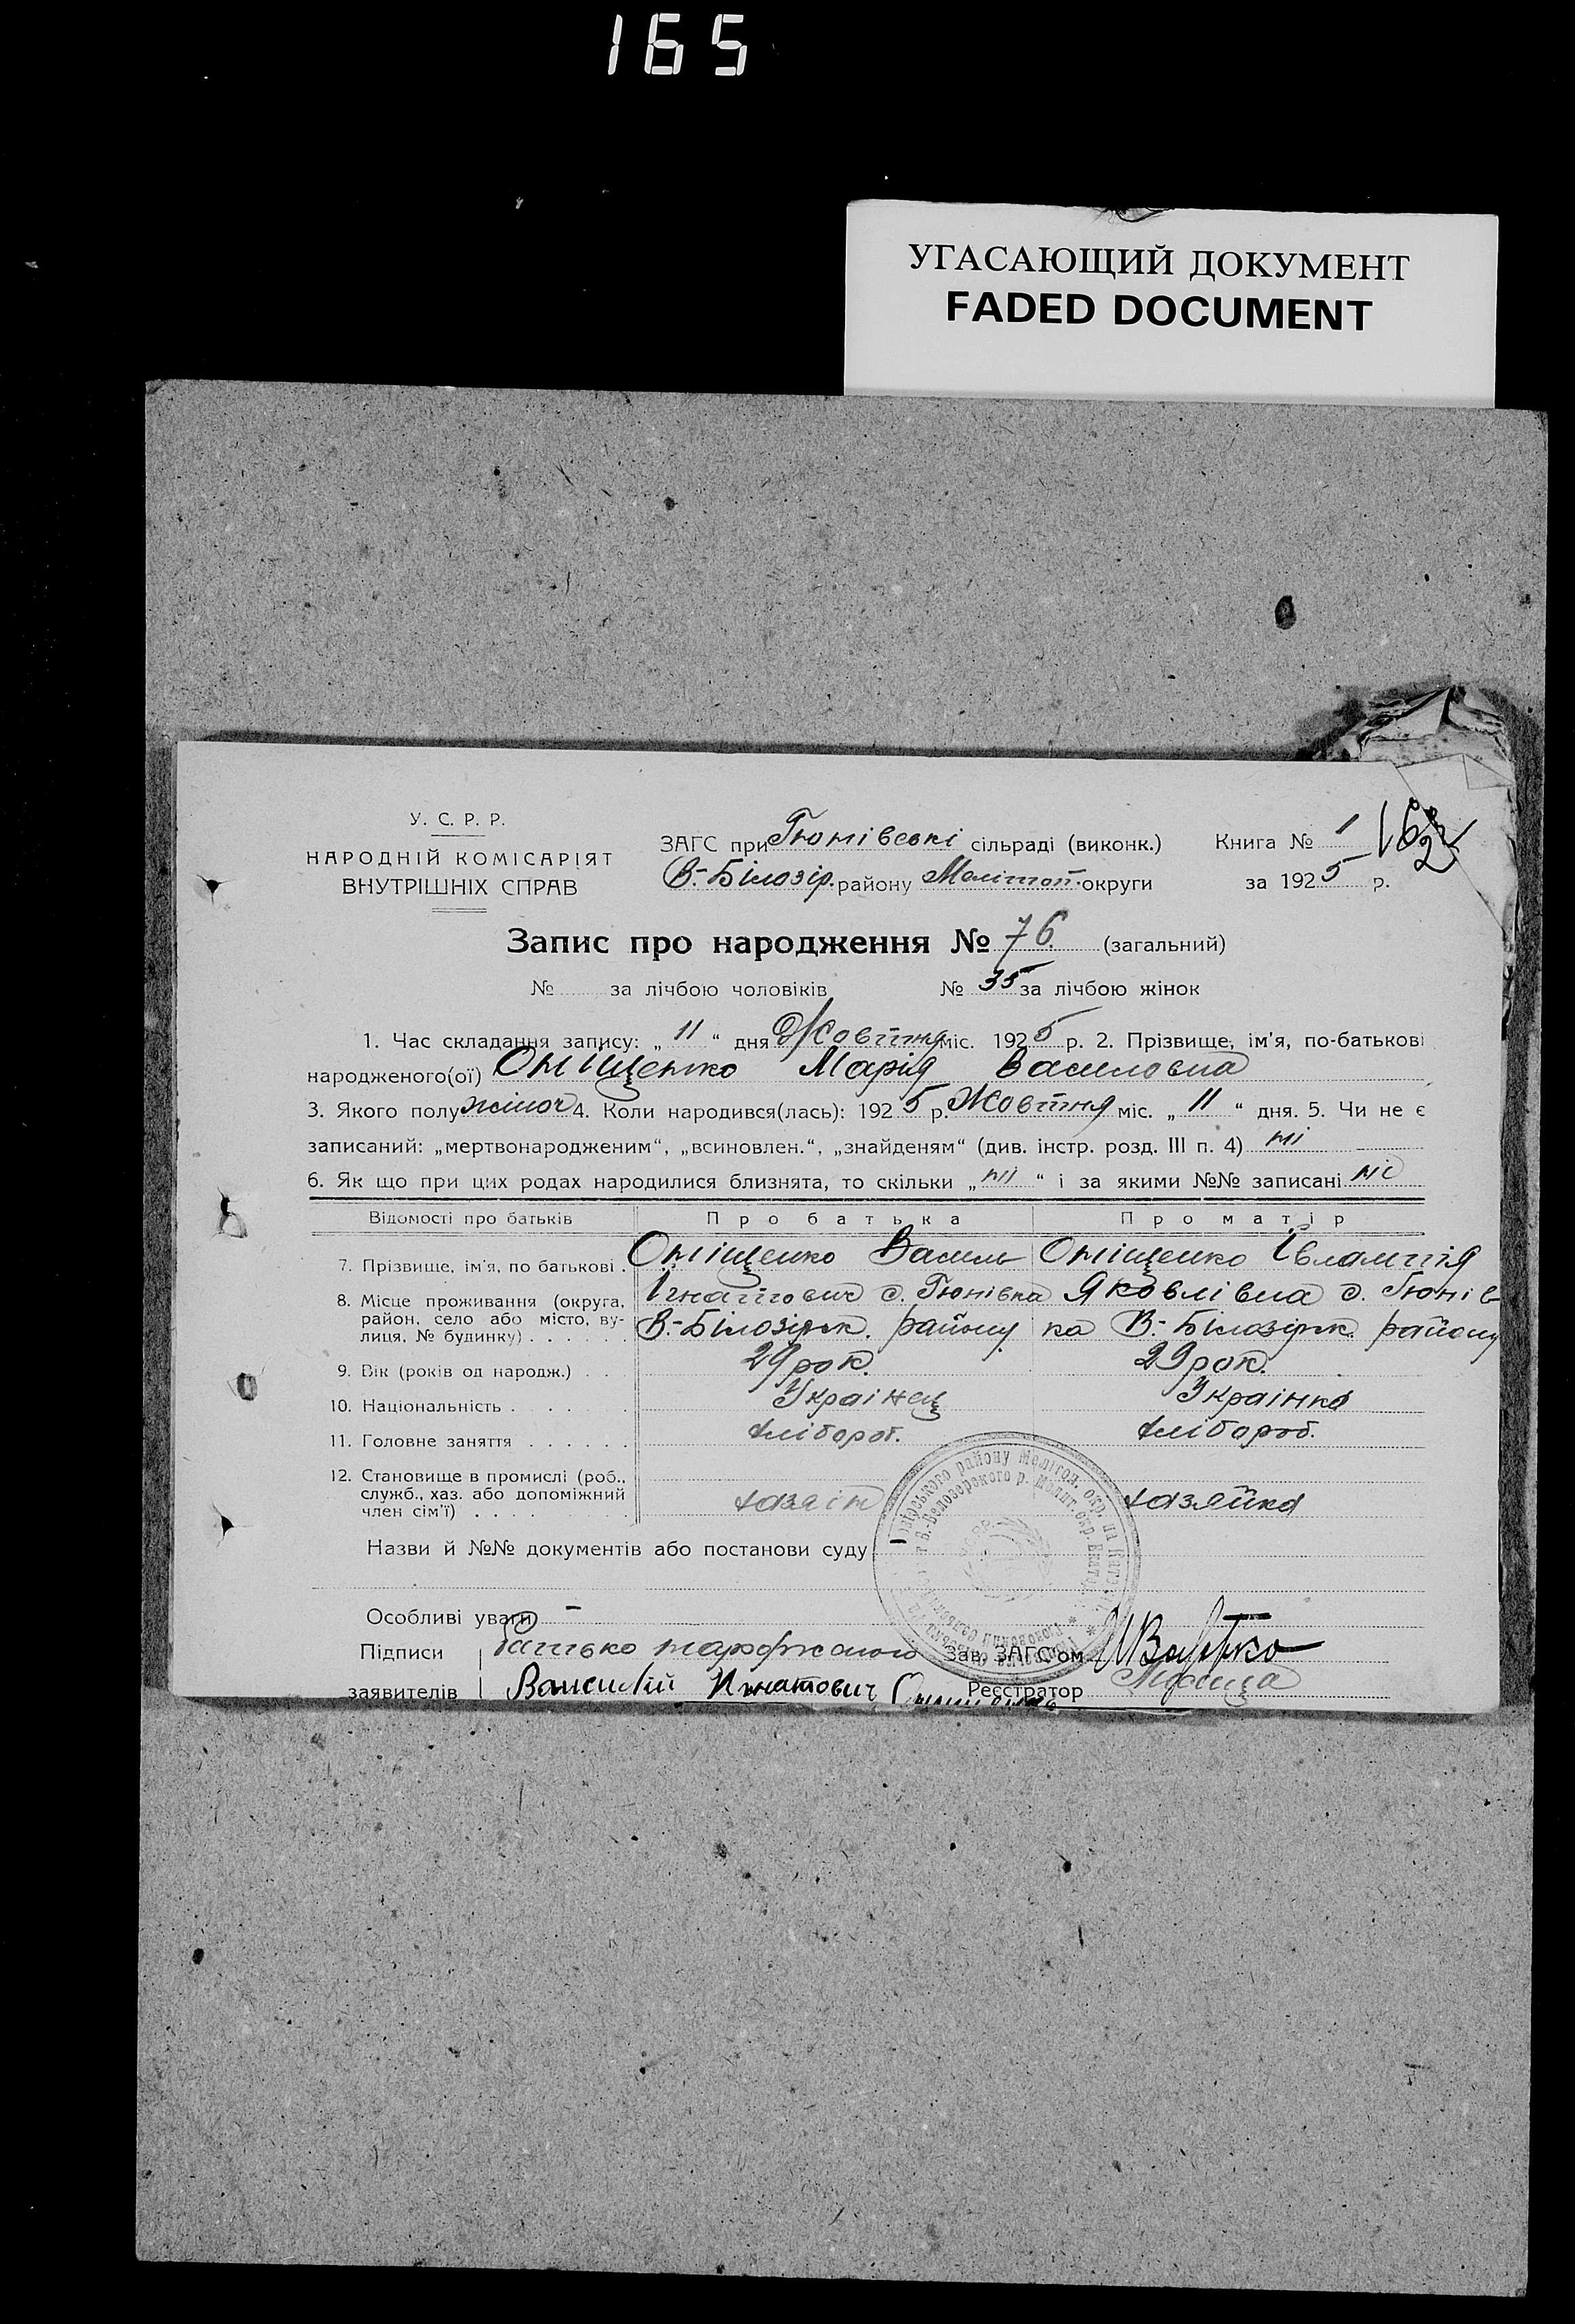 165
УГАСАЮЩИЙ ДОКУМЕНТ
FADED DOCUMENT
У. С. Р. Р.
НАРОДНІЙ КОМІСАРІЯТ
ВНУТРІШНІХ СПРАВ
ЗАГС при Гюнівські сільраді (виконк.)
В.-Білозір. району Мелітоп. округи
Книга № 1
за 1925 р.
162
Запис про народження № 76. (загальний)
№ за лічбою чоловіків № 35 за лічбою жінок
1. Час складання запису: „ 11 “ дня Жовтня міс. 1925 р. 2. Прізвище, ім'я, по-батькові
народженого(ої) Оніщенко Марія Василовна
3. Якого полу жіноч 4. Коли народився(лась): 1925 р. Жовтня міс. „ 11 “ дня. 5. Чи не є
записаний: „мертвонародженим“, „всиновлен.“, „знайденям“ (див. інстр. розд. III п. 4) ні
6. Як що при цих родах народилися близнята, то скільки „ ні “ і за якими №№ записані ні
Відомості про батьків Про батька Про матір
7. Прізвище, ім'я, по батькові . Оніщенко Василь Оніщенко Івлампія
8. Місце проживання (округа, Ігнатович с. Гюнівка Яковлівна с. Гюнів-
район, село або місто, ву- В.-Білозірск. району ка В.-Білозірск. району
лиця, № будинку) . . . . . .
9. Вік (років од народж.) . . . 29 рок. 29 рок.
10. Національність . . . Українец Українка
11. Головне заняття . . . . . . хлібороб. хлібороб.
12. Становище в промислі (роб.,
служб., хаз. або допоміжний хазяін хазяйка
член сім'ї) . . . .
Назви й №№ документів або постанови суду –
Особливі уваги –
Підписи Батько Зав. ЗАГС'ом
заявителів Василий Игнатович Реєстратор